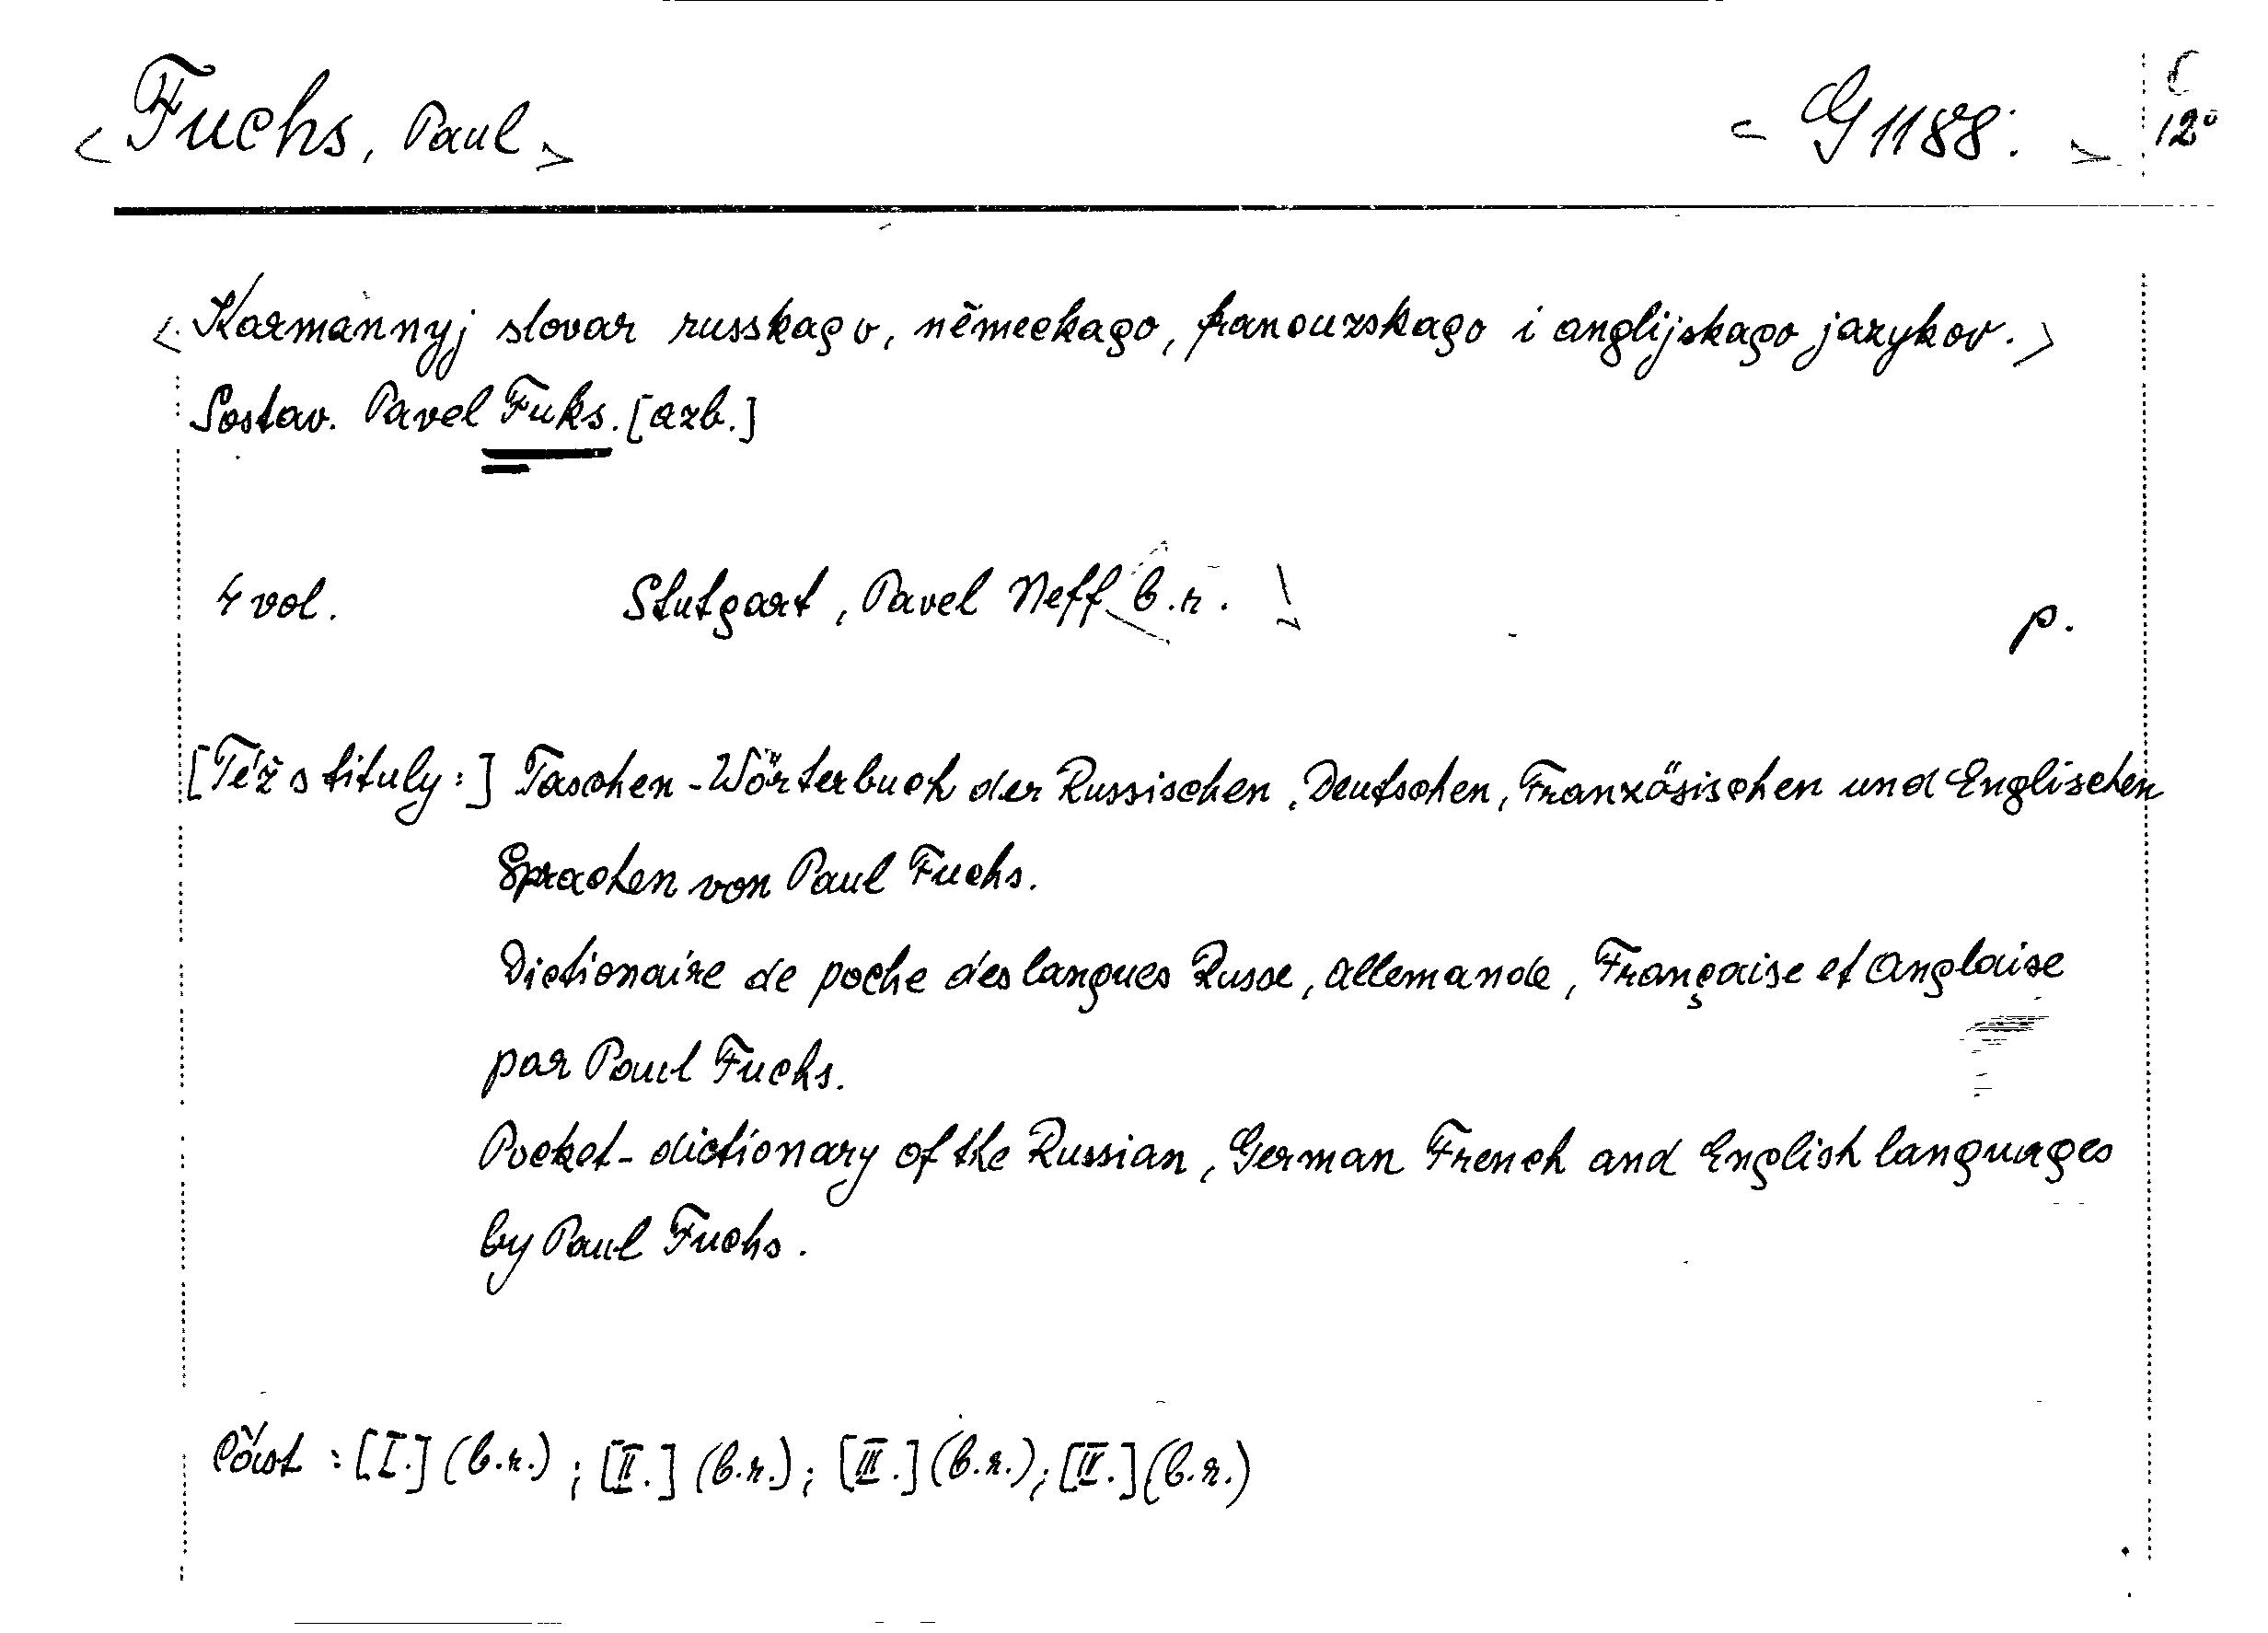 <Fuchs, Paul> <G 1188.> 12°
<Karmannyj slovar russkago, německago, francuzskago i anglijskago jazykov.>
Sostav. Pavel Fuks. [azb.]
4 vol. Stutgart, Pavel Neff <b.r.> p.
[Též s tituly:] Taschen-Wörterbuch der Russischen, Deutschen, Franzäsischen und Englischen
Sprachen von Paul Fuchs.
Dictionaire de poche des langues Russe, Allemande, Française et Anglaise
par Paul Fuchs.
Pocket-dictionary of the Russian, German French and English languages
by Paul Fuchs.
Část : [I.] (b.r.) ; [II.] (b.r.) ; [III.] (b.r.) ; [IV.] (b.r.)